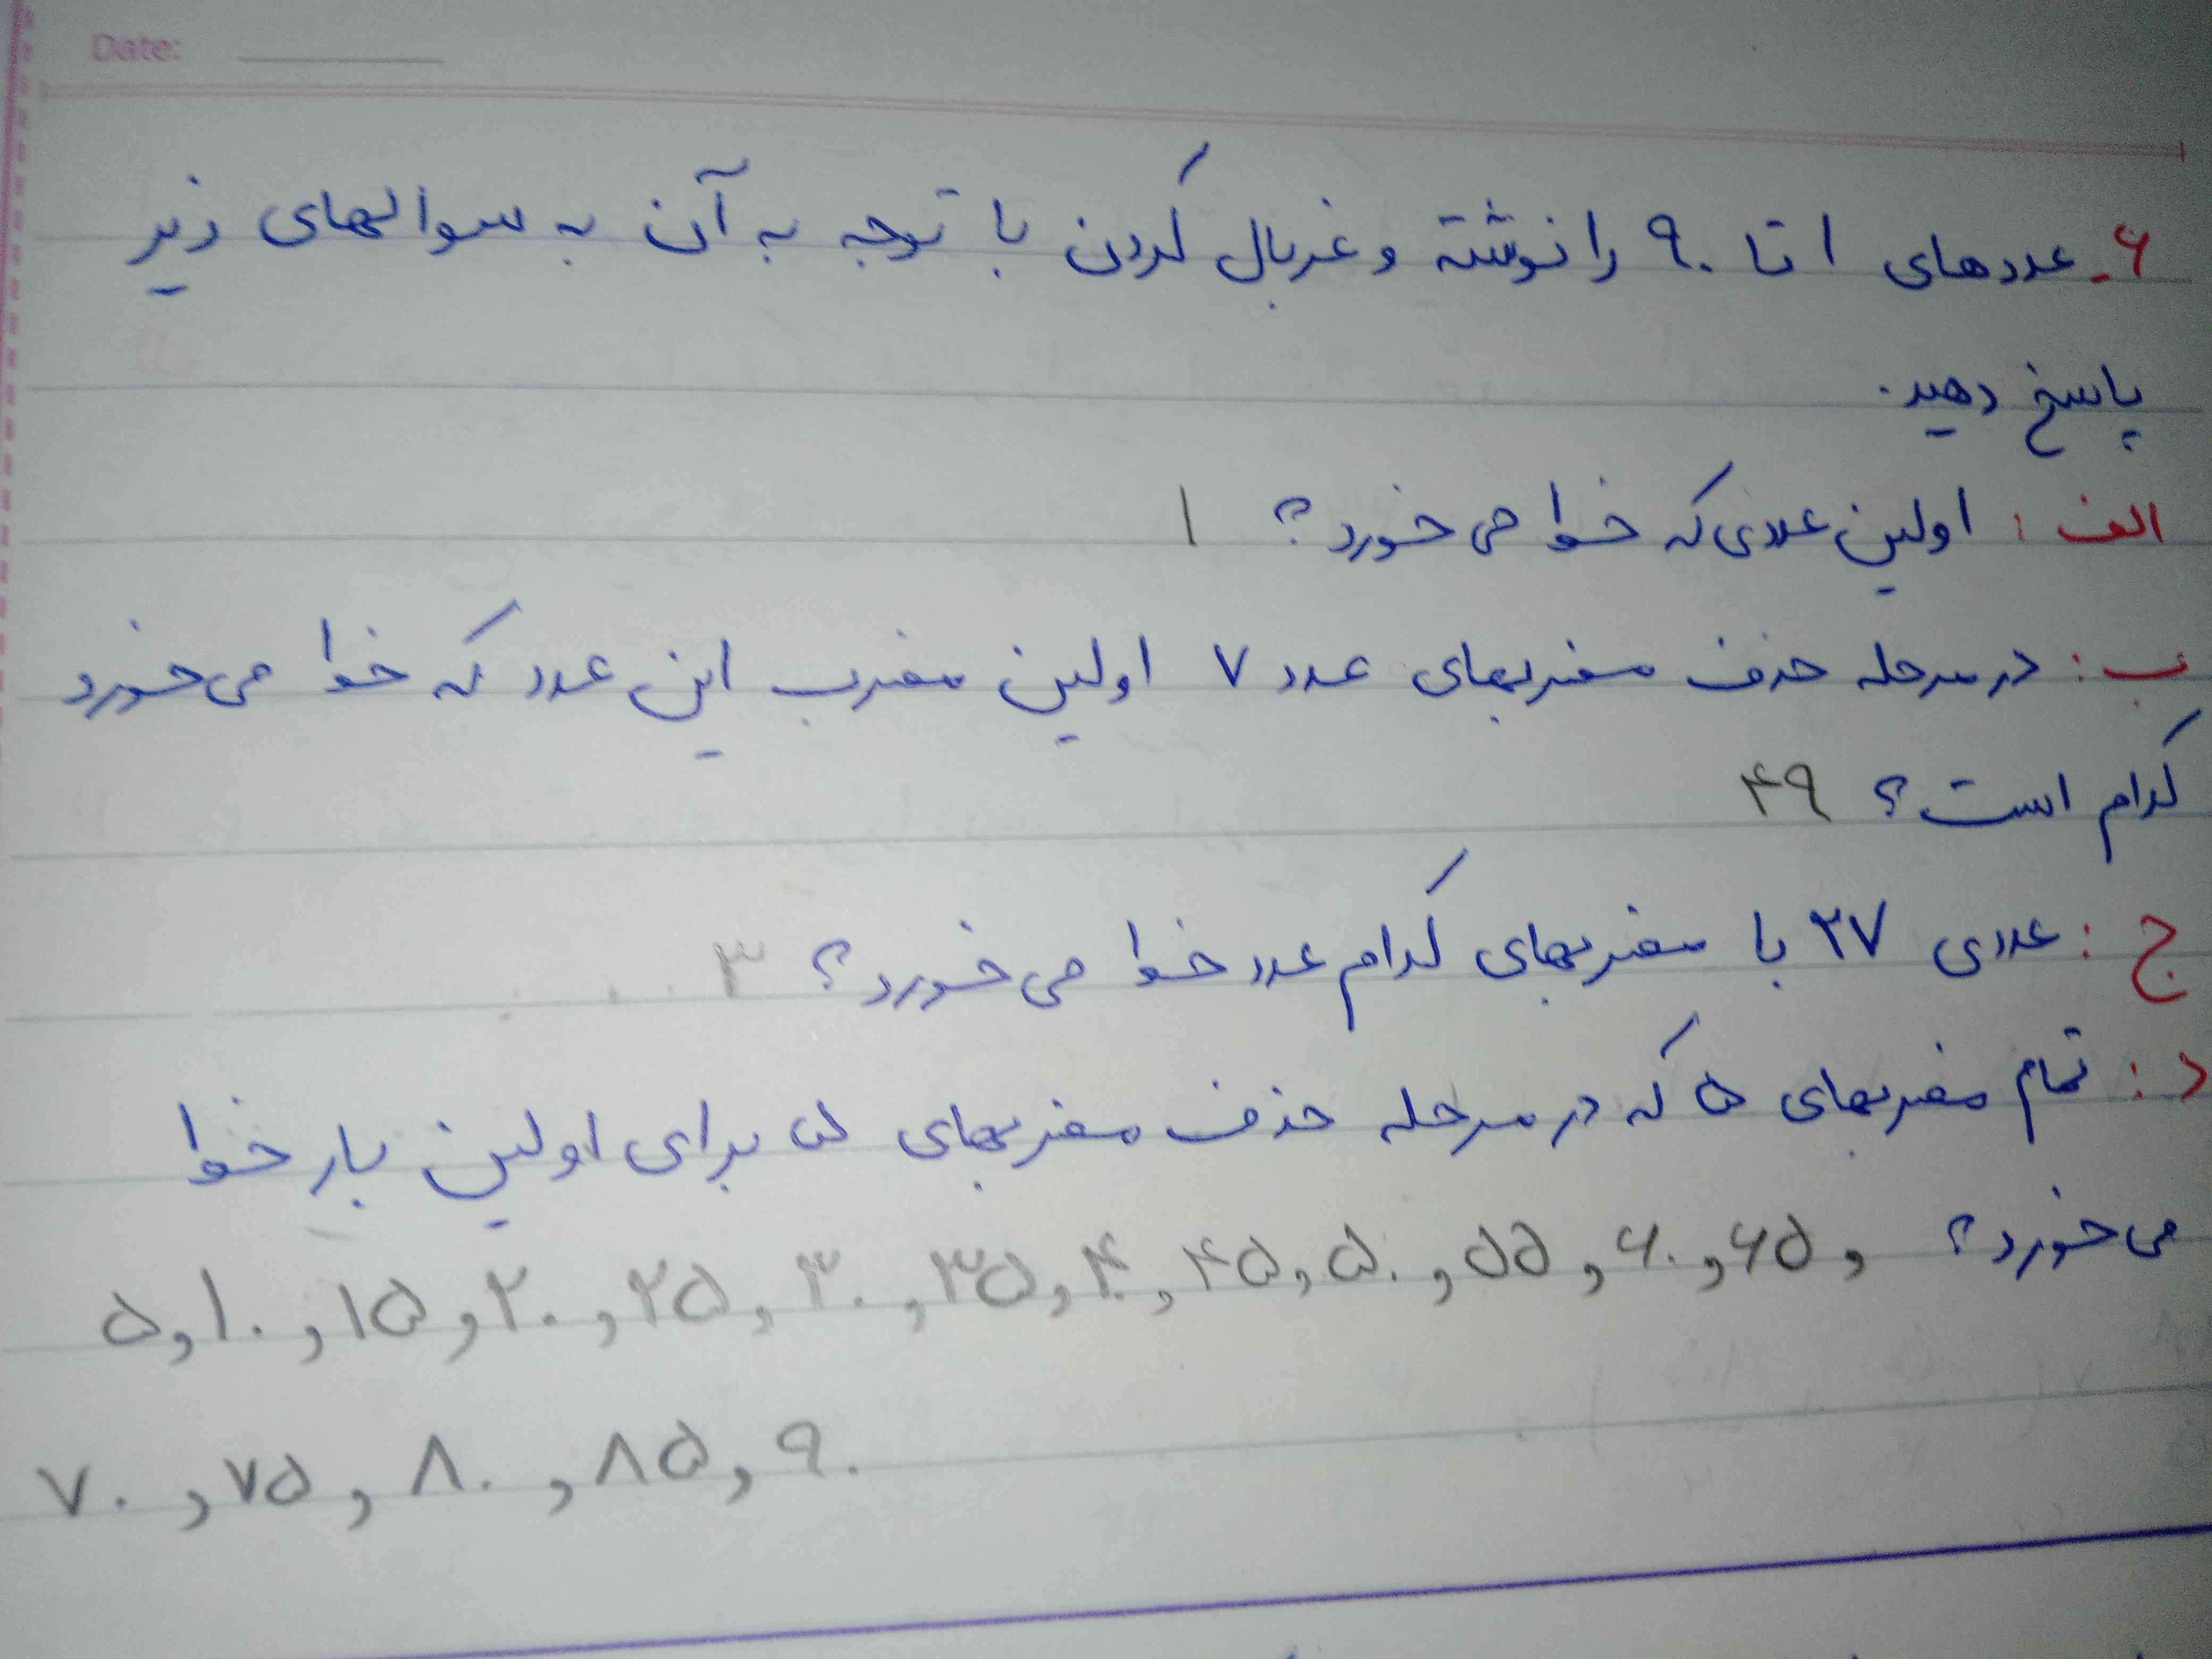 Date:
۶- عددهای ۱ تا ۹۰ را نوشته و غربال کردن با توجه به آن به سوالهای زیر
پاسخ دهید.
الف : اولین عددی که خط می خورد؟ ۱
ب : در مرحله حذف مضربهای عدد ۷ اولین مضرب این عدد که خط می خورد
کدام است؟ ۴۹
ج : عددی ۲۷ با مضربهای کدام عدد خط می خورد؟ ۳
د : تمام مضربهای ۵ که در مرحله حذف مضربهای ۵ برای اولین بار خط
می خورد؟ ۵,۱۰,۱۵,۲۰,۲۵,۳۰,۳۵,۴۰,۴۵,۵۰,۵۵,۶۰,۶۵,
۷۰,۷۵,۸۰,۸۵,۹۰